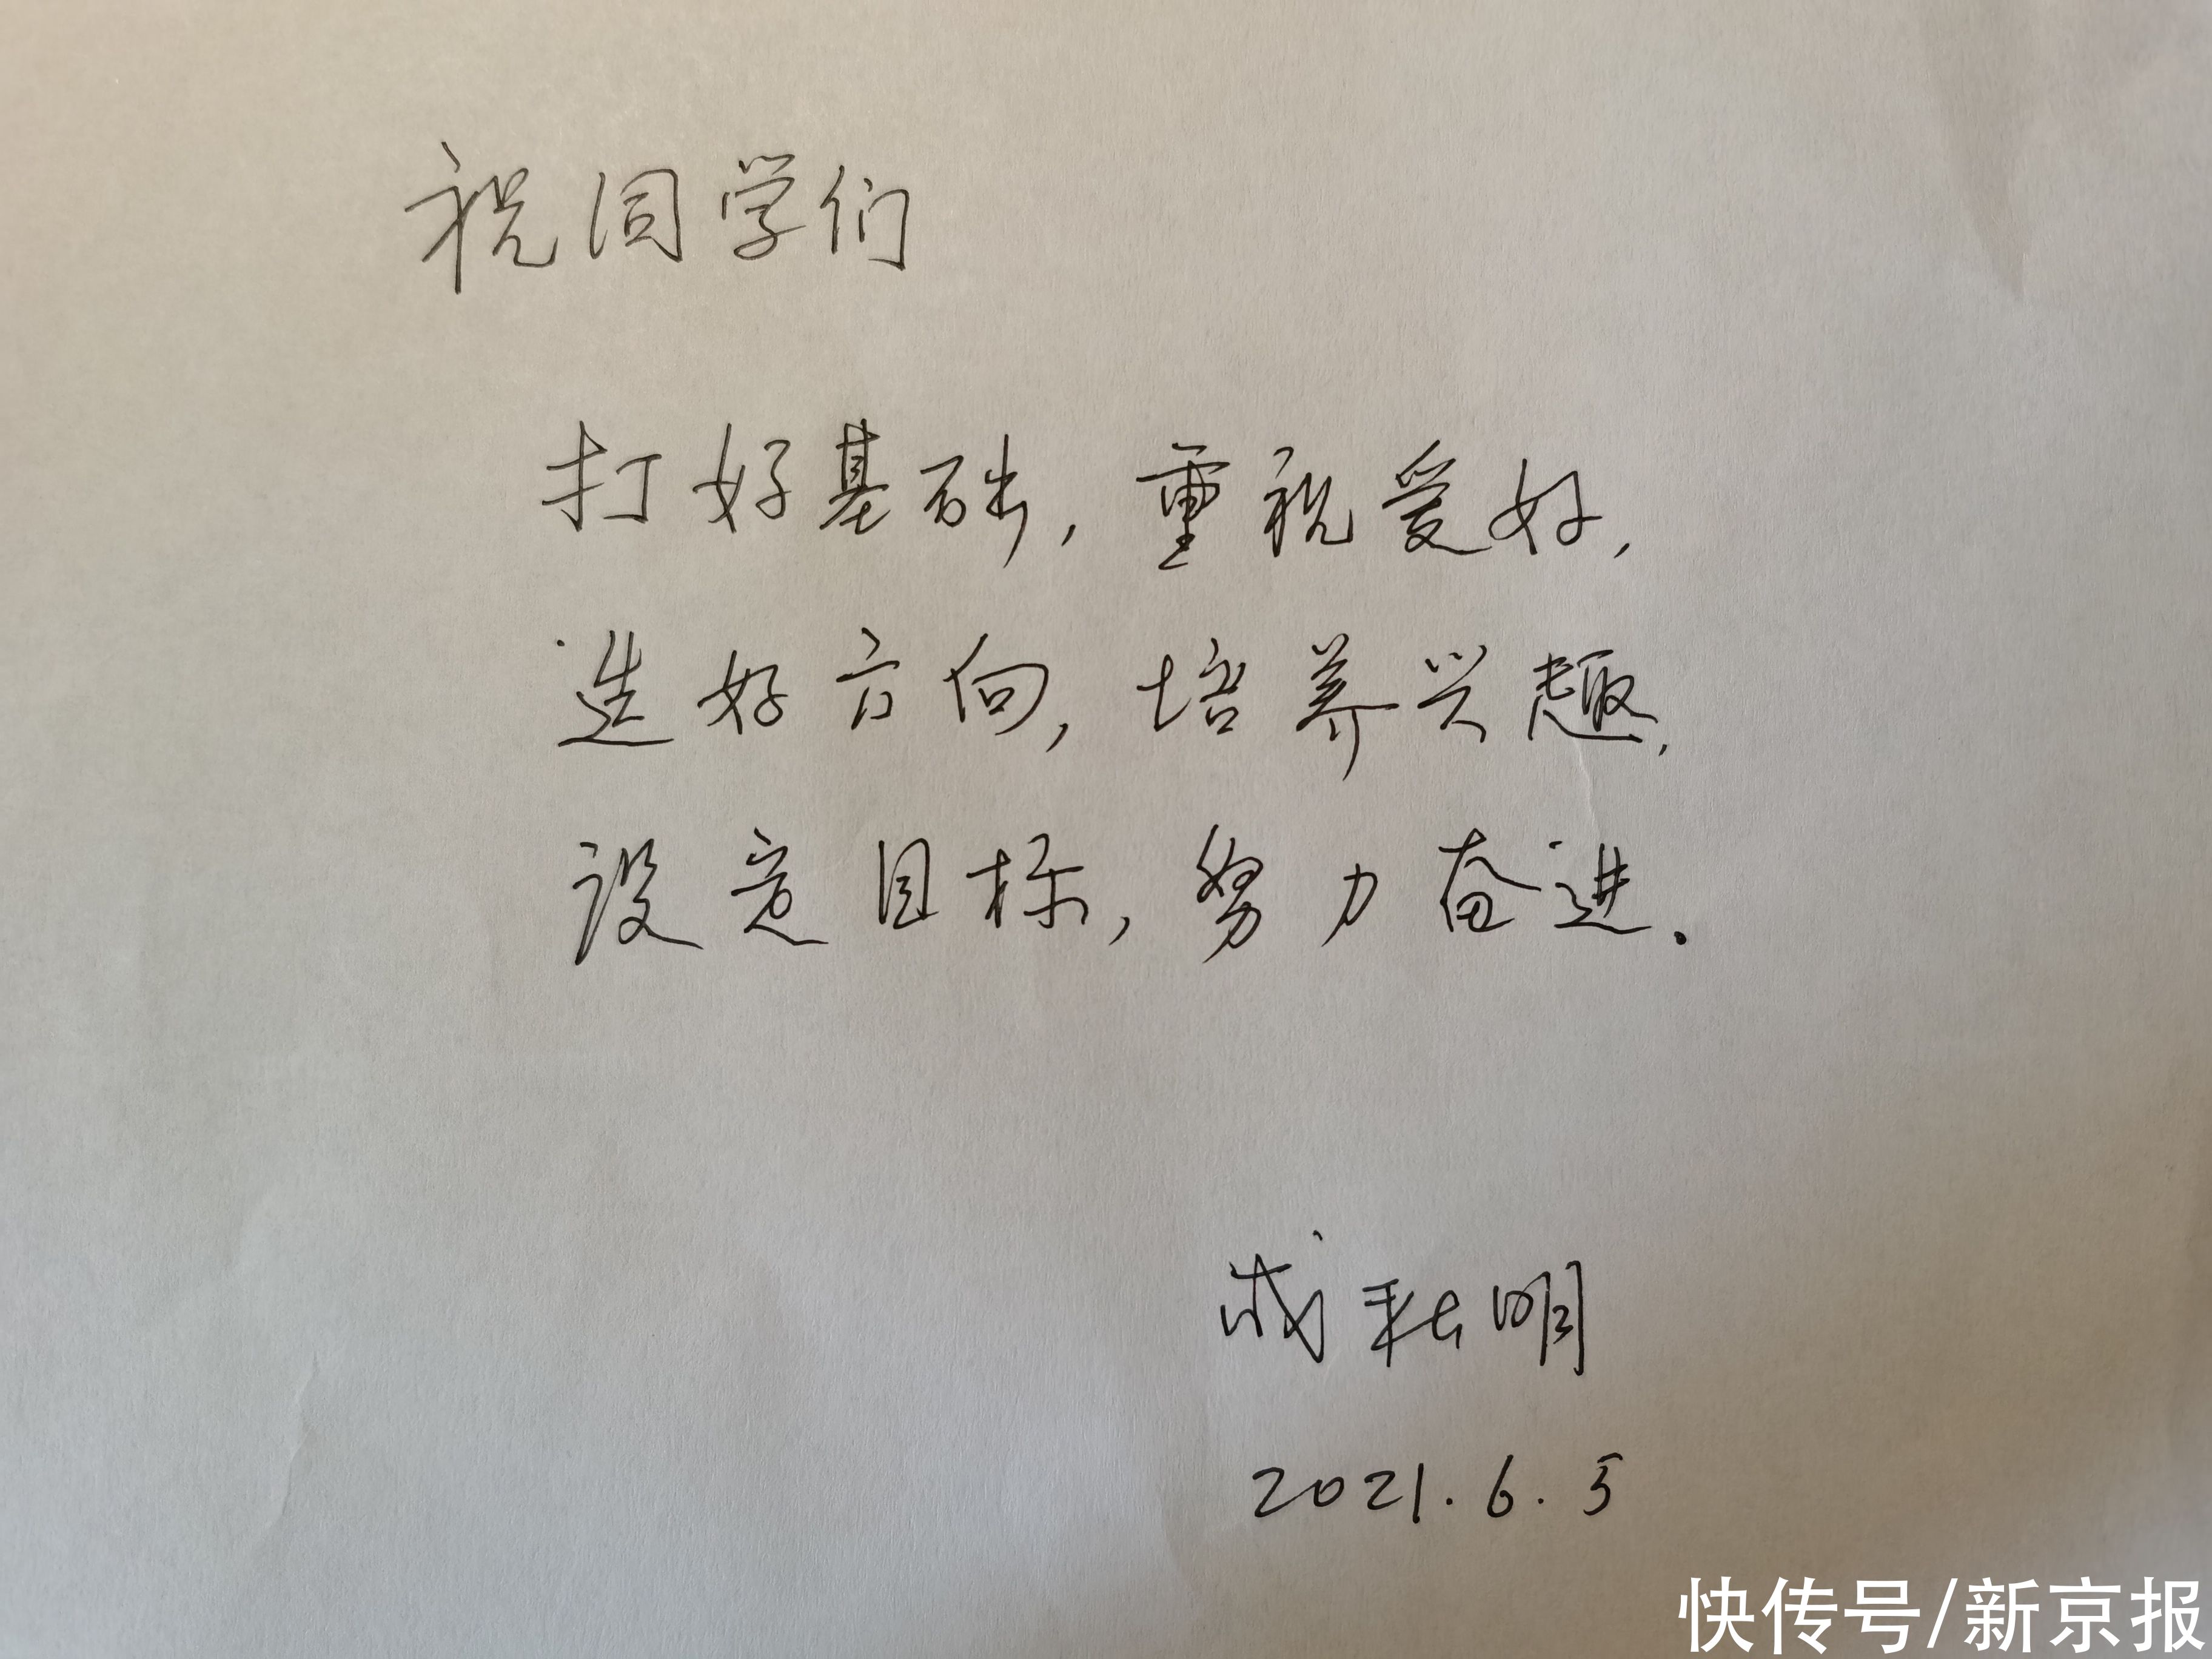 祝同学们
打好基础，重视爱好，
选好方向，培养兴趣，
设定目标，努力奋进.
成秋明
2021.6.5
快传号/新京报